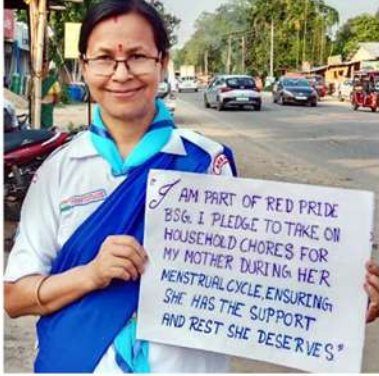 "I AM PART OF RED PRIDE
BSG. I PLEDGE TO TAKE ON
HOUSEHOLD CHORES FOR
MY MOTHER DURING HER
MENSTRUAL CYCLE, ENSURING
SHE HAS THE SUPPORT
AND REST SHE DESERVES"